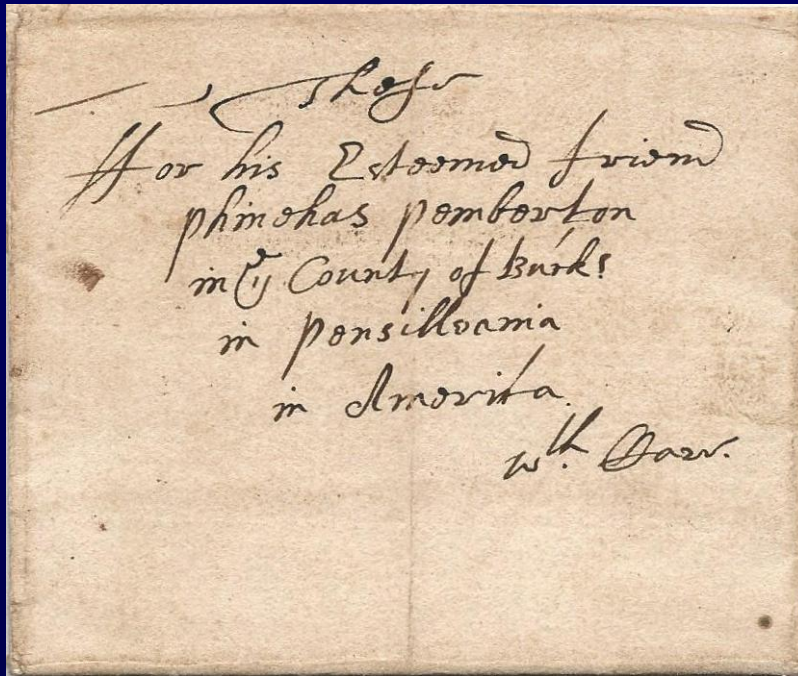 These
ffor his Esteemed friend
phinehas pemberton
in ye County of Bucks
in pensillvania
in America.
wth Care.